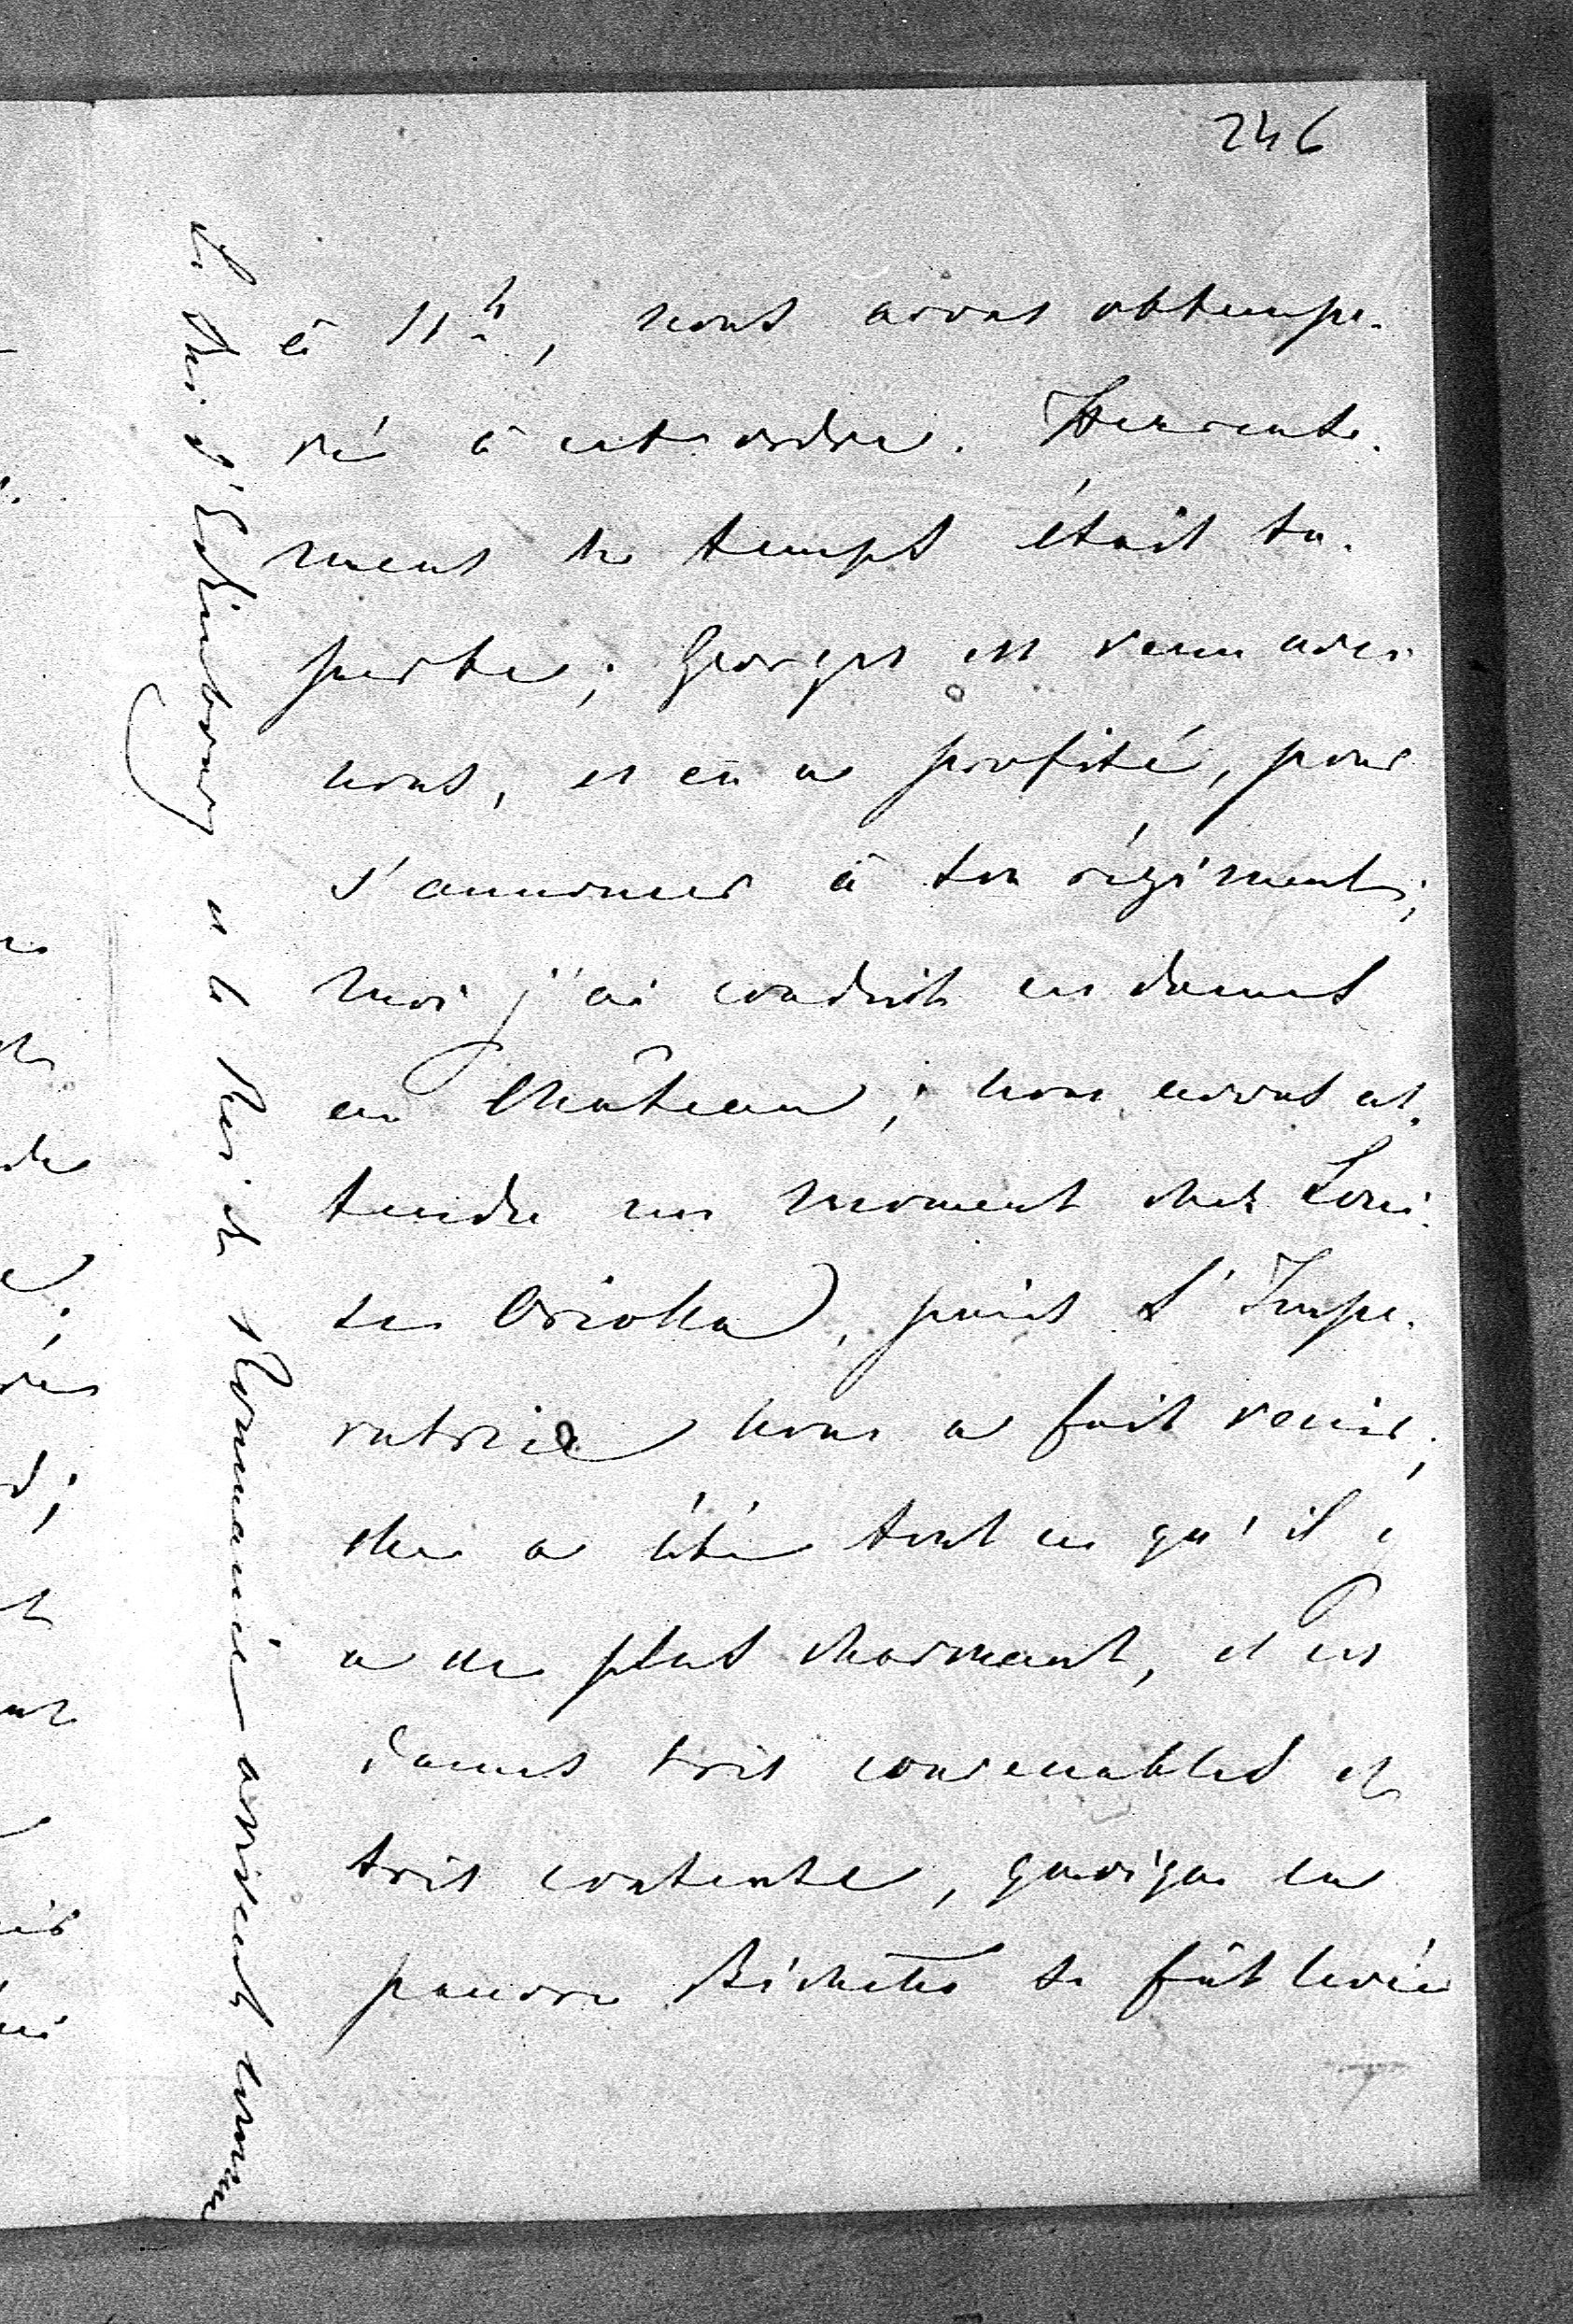 246
à 11h, nous avons obtempé-
ré à cet ordre. Heureuse-
ment le temps était su-
perbe; Georges est venu avec
nous, et en a profité, pour
s'annoncer à son régiment;
moi j'ai conduit ces dames
au Château; nous avons at-
tendu un moment chez Loui-
se Oriolla, puis l'Impé-
ratrice nous a fait venir;
elle a été tout ce qu'il y
a de plus charmant, et ces
dames très convenables et
très contentes, quoique la
pauvre Bichette se fût levée
Le Duc d'Edimbourg et le Roi de Roumanie arrivent